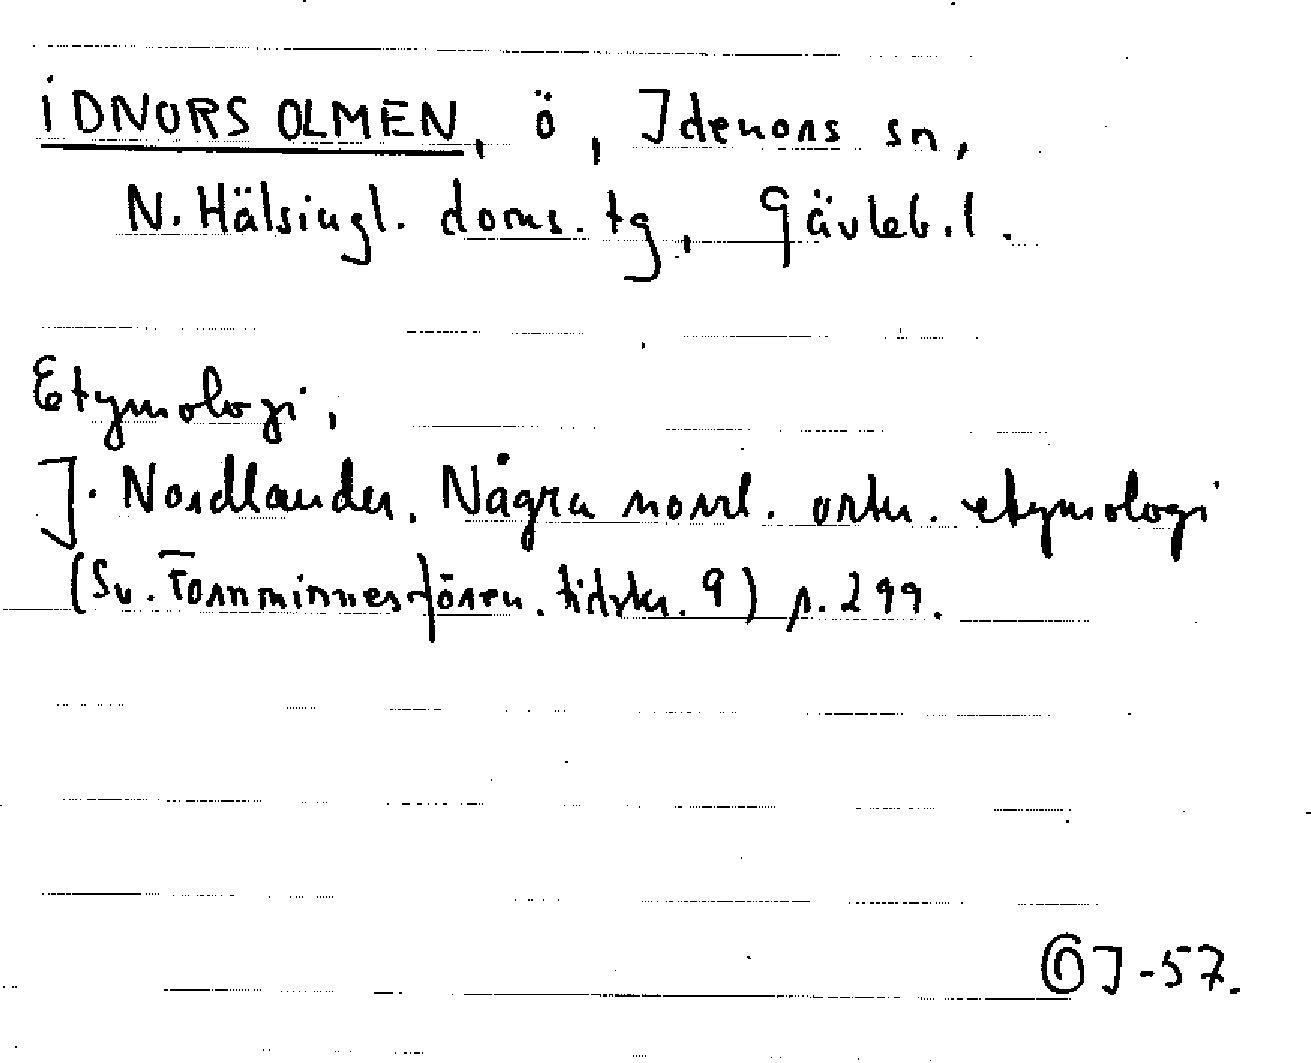 IDNORS OLMEN, ö, Idenors sn,
N. Hälsingl. doms. tg, Gävleb. l.
Etymologi,
J. Nordlander, Några norrl. ortn. etymologi
(Sv. Fornminnesfören. tidskr. 9) p. 299.
J-57.